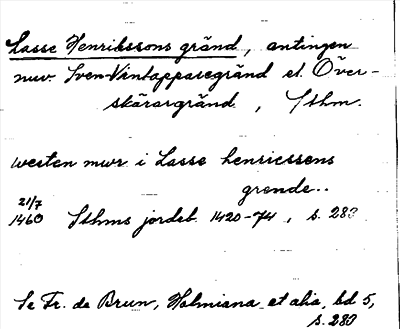 Lasse Henrikssons gränd, antingen
nuv. Sven Vintappares gränd el. Över-
skärargränd, Sthm.
westen mwr i Lasse henricssens
grende..
21/7
1460 Sthms jordeb 1420-74, s. 283
Se Fr. de Brun, Holmiana et alia, bd 5,
s. 283